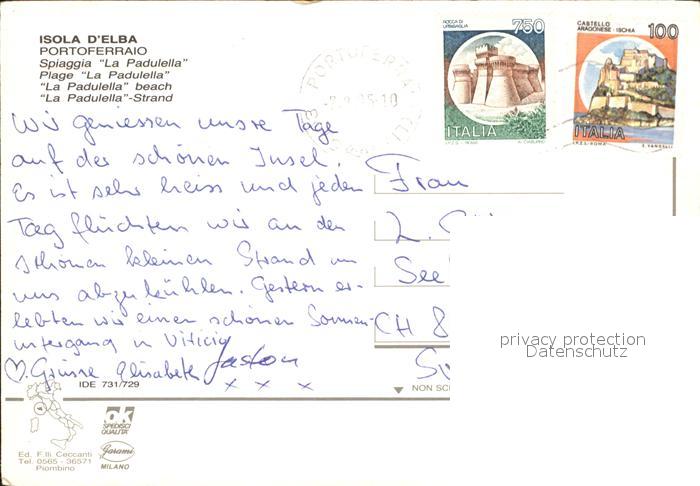 ISOLA D'ELBA
PORTOFERRAIO
Spiaggia "La Padulella"
Plage "La Padulella"
"La Padulella" beach
"La Padulella"-Strand
ROCCA DI URBISAGLIA
750
ITALIA
I.P.Z.S.-ROMA
CASTELLO ARAGONESE - ISCHIA
100
ITALIA
I.P.Z.S.-ROMA
E. VANGELLI
PORTOFERRA
Wir geniessen unsre Tage
auf der schönen Insel.
Es ist sehr heiss und jeden
Tag flüchten wir an den
schönen kleinen Strand um
uns abzukühlen. Gestern er-
lebten wir einen schönen Sonnen-
untergang in Viticcio
♡. Grüsse Elisabeth Gaston
x x x
Frau
L.
See
CH 8
privacy protection
Datenschutz
IDE 731/729
NON SC
ok
SPEDISCI
QUALITA'
Garami
MILANO
Ed. F.lli Ceccanti
Tel. 0565 - 36571
Piombino